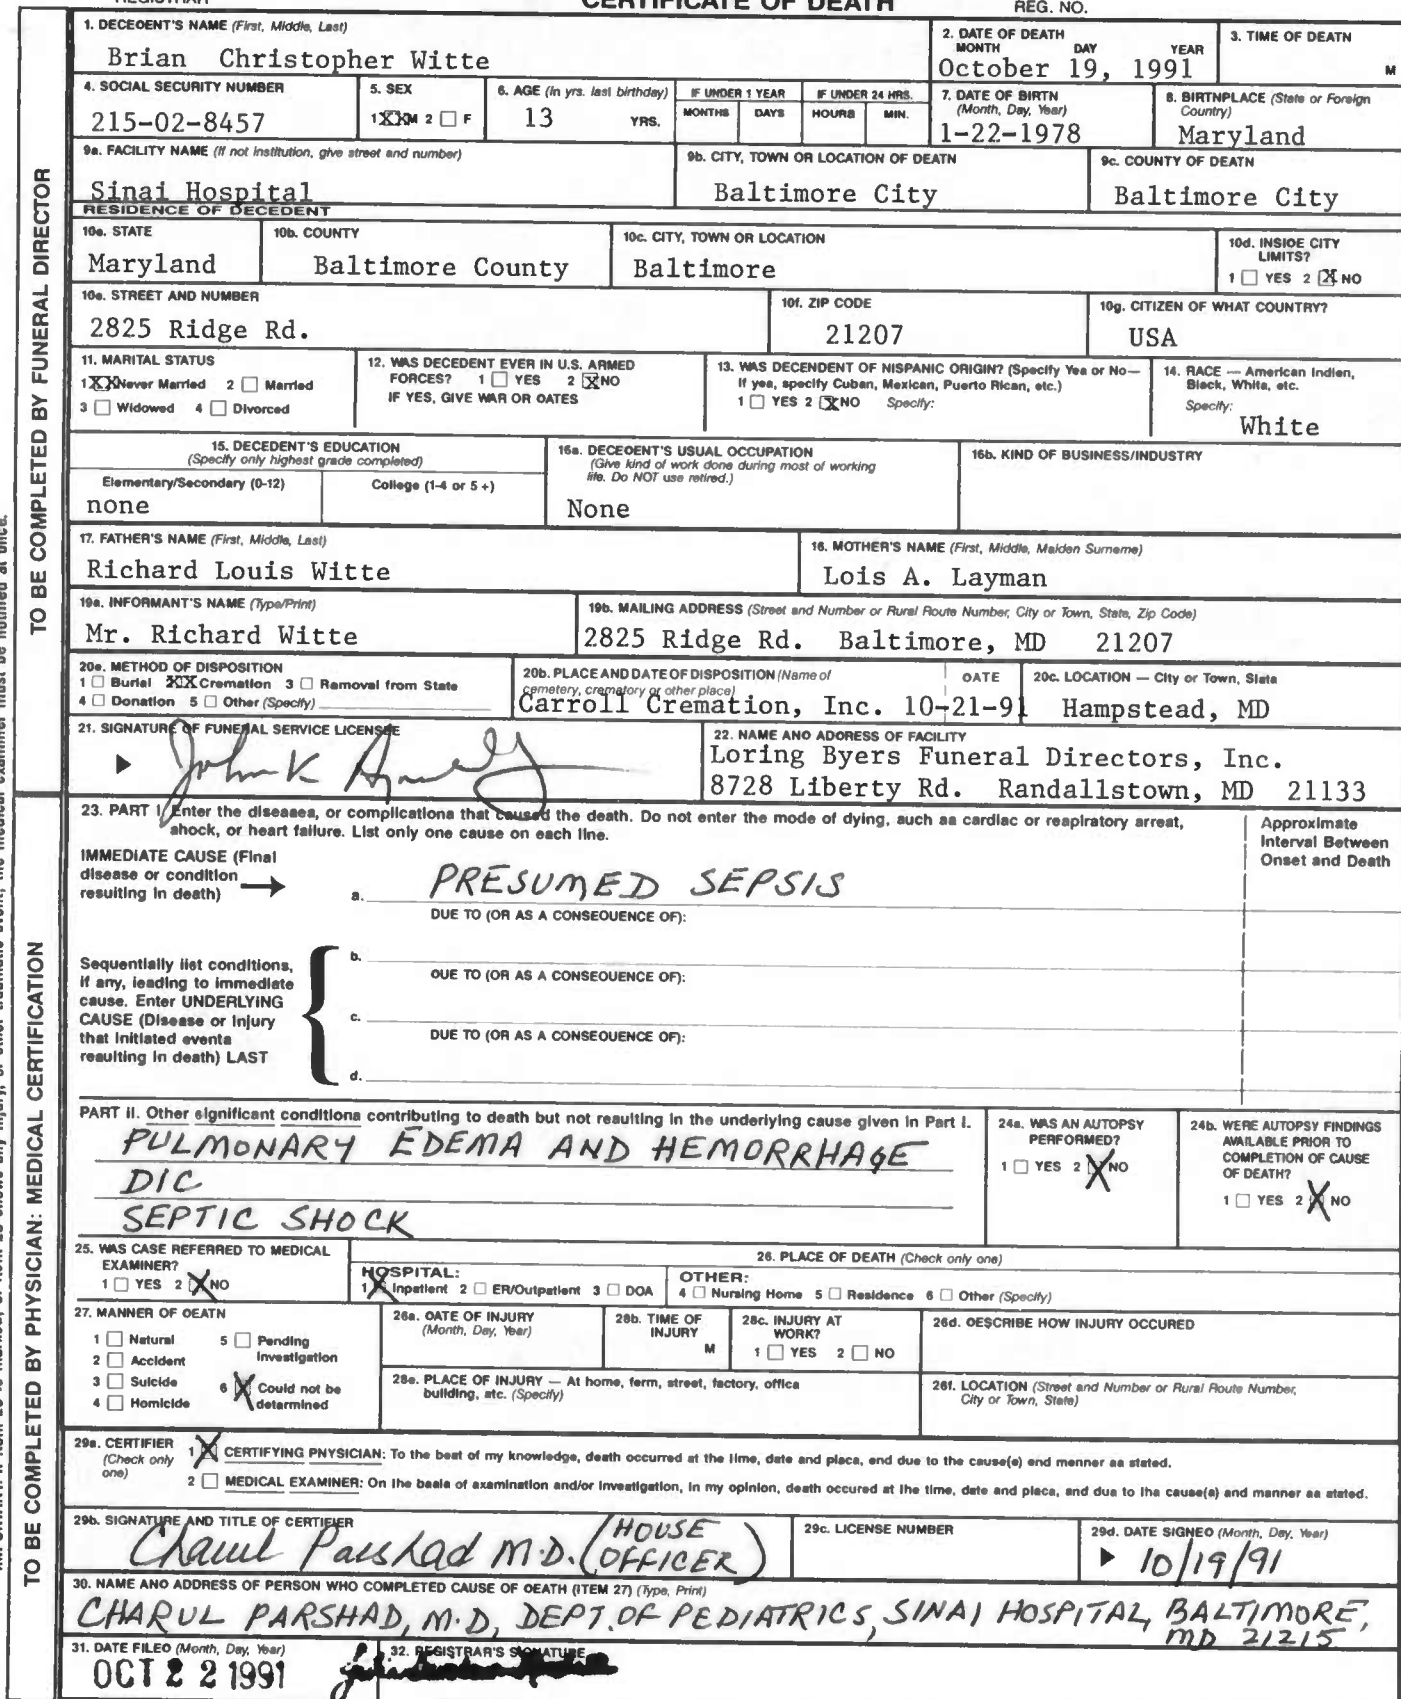 CERTIFICATE OF DEATH
REG. NO.
1. DECEOENT'S NAME (First, Middle, Last)
Brian Christopher Witte
2. DATE OF DEATH
MONTH DAY YEAR
October 19, 1991
3. TIME OF DEATH
M
4. SOCIAL SECURITY NUMBER
215-02-8457
5. SEX
1 XX M 2 F
6. AGE (in yrs. last birthday)
13 YRS.
IF UNDER 1 YEAR
MONTHS DAYS
IF UNDER 24 HRS.
HOURS MIN.
7. DATE OF BIRTN
(Month, Day, Year)
1-22-1978
8. BIRTNPLACE (State or Foreign
Country)
Maryland
9a. FACILITY NAME (If not institution, give street and number)
Sinai Hospital
9b. CITY, TOWN OR LOCATION OF DEATH
Baltimore City
9c. COUNTY OF DEATH
Baltimore City
RESIDENCE OF DECEDENT
10a. STATE
Maryland
10b. COUNTY
Baltimore County
10c. CITY, TOWN OR LOCATION
Baltimore
10d. INSIDE CITY
LIMITS?
1 YES 2 X NO
10e. STREET AND NUMBER
2825 Ridge Rd.
10f. ZIP CODE
21207
10g. CITIZEN OF WHAT COUNTRY?
USA
11. MARITAL STATUS
1 XX Never Married 2 Married
3 Widowed 4 Divorced
12. WAS DECEDENT EVER IN U.S. ARMED
FORCES? 1 YES 2 X NO
IF YES, GIVE WAR OR OATES
13. WAS DECENDENT OF NISPANIC ORIGIN? (Specify Yes or No—
If yes, specify Cuban, Mexican, Puerto Rican, etc.)
1 YES 2 X NO Specify:
14. RACE — American Indien,
Black, White, etc.
Specify:
White
15. DECEDENT'S EDUCATION
(Specify only highest grade completed)
Elementary/Secondary (0-12)
none
College (1-4 or 5 +)
16a. DECEOENT'S USUAL OCCUPATION
(Give kind of work done during most of working
life. Do NOT use retired.)
None
16b. KIND OF BUSINESS/INDUSTRY
17. FATHER'S NAME (First, Middle, Last)
Richard Louis Witte
18. MOTHER'S NAME (First, Middle, Malden Surname)
Lois A. Layman
19a. INFORMANT'S NAME (Type/Print)
Mr. Richard Witte
19b. MAILING ADDRESS (Street and Number or Rural Route Number, City or Town, State, Zip Code)
2825 Ridge Rd. Baltimore, MD 21207
20a. METHOD OF DISPOSITION
1 Burial XX Cremation 3 Ramoval from State
4 Donation 5 Other (Specify)
20b. PLACE AND DATE OF DISPOSITION (Name of
cemetery, crematory or other place)
OATE
Carroll Cremation, Inc. 10-21-91
20c. LOCATION — City or Town, State
Hampstead, MD
21. SIGNATURE OF FUNERAL SERVICE LICENSEE
John K
22. NAME ANO ADORESS OF FACILITY
Loring Byers Funeral Directors, Inc.
8728 Liberty Rd. Randallstown, MD 21133
TO BE COMPLETED BY FUNERAL DIRECTOR
23. PART I. Enter the diseases, or complications that caused the death. Do not enter the mode of dying, such as cardiac or respiratory arrest,
shock, or heart failure. List only one cause on each line.
Approximate
Interval Between
Onset and Death
IMMEDIATE CAUSE (Final
disease or condition
resulting in death) →
a. PRESUMED SEPSIS
DUE TO (OR AS A CONSEOUENCE OF):
Sequentially list conditions,
if any, leading to immediate
cause. Enter UNDERLYING
CAUSE (Disease or Injury
that initiated events
resulting in death) LAST
b.
OUE TO (OR AS A CONSEQUENCE OF):
c.
DUE TO (OR AS A CONSEOUENCE OF):
d.
PART II. Other significant conditions contributing to death but not resulting in the underlying cause given in Part I.
PULMONARY EDEMA AND HEMORRHAGE
DIC
SEPTIC SHOCK
24a. WAS AN AUTOPSY
PERFORMED?
1 YES 2 X NO
24b. WERE AUTOPSY FINDINGS
AVAILABLE PRIOR TO
COMPLETION OF CAUSE
OF DEATH?
1 YES 2 X NO
25. WAS CASE REFERRED TO MEDICAL
EXAMINER?
1 YES 2 X NO
26. PLACE OF DEATH (Check only one)
HOSPITAL:
1 X Inpatient 2 ER/Outpatient 3 DOA
OTHER:
4 Nursing Home 5 Residence 6 Other (Specify)
27. MANNER OF OEATH
1 Natural 5 Pending
Investigation
2 Accident
3 Suicide 6 X Could not be
determined
4 Homicide
28a. OATE OF INJURY
(Month, Day, Year)
28b. TIME OF
INJURY
M
28c. INJURY AT
WORK?
1 YES 2 NO
28d. OESCRIBE HOW INJURY OCCURED
28e. PLACE OF INJURY — At home, farm, street, factory, office
building, etc. (Specify)
28f. LOCATION (Street and Number or Rural Route Number,
City or Town, State)
29a. CERTIFIER
(Check only
one)
1 X CERTIFYING PNYSICIAN: To the best of my knowledge, death occurred at the time, date and place, end due to the cause(s) end menner as stated.
2 MEDICAL EXAMINER: On the basis of examination and/or investigation, in my opinion, death occured at the time, date and place, and due to the cause(s) and manner as stated.
29b. SIGNATURE AND TITLE OF CERTIFIER
Charul Parshad M.D. (HOUSE
OFFICER)
29c. LICENSE NUMBER
29d. DATE SIGNEO (Month, Day, Year)
10/19/91
30. NAME ANO ADDRESS OF PERSON WHO COMPLETED CAUSE OF OEATH (ITEM 27) (Type, Print)
CHARUL PARSHAD, M.D, DEPT. OF PEDIATRICS, SINAI HOSPITAL, BALTIMORE,
MD 21215
31. DATE FILEO (Month, Day, Year)
OCT 22 1991
32. REGISTRAR'S SIGNATURE
TO BE COMPLETED BY PHYSICIAN: MEDICAL CERTIFICATION